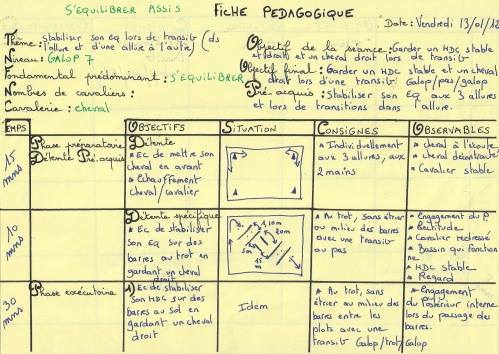 S'EQUILIBRER ASSIS
FICHE PEDAGOGIQUE
Date: Vendredi 13/01/12
Thème: stabiliser son EQ lors de transit° (ds
l'allure et d'une allure à l'autre)
Niveau: GALOP 7
Fondamental prédominant: S'EQUILIBRER
Nombres de cavaliers:
Cavalerie: cheval
Objectif de la séance: Garder un HDC stable
et droit et un cheval droit lors de transit°
Objectif final: Garder un HDC stable et un cheval
droit lors d'une transit° Galop/pas/galop
Pré-acquis: Stabiliser son EQ aux 3 allures
et lors de transitions dans l'allure.
TEMPS
OBJECTIFS
SITUATION
CONSIGNES
OBSERVABLES
15
mns
Phase préparatoire
Détente Pré-acquis
Détente
* EC de mettre son
cheval en avant
* Echauffement
cheval/cavalier
* Individuellement
aux 3 allures, aux
2 mains
* cheval à l'écoute
* cheval décontracté
* Cavalier stable
10
mns
Détente spécifique
* EC de stabiliser
son EQ sur des
barres au trot en
gardant un cheval
droit
1,10m
20m
5m
15
m
* Au trot, sans étrier
au milieu des barres
avec une transit°
au pas
* Engagement du P.
* Rectitude
* Cavalier redressé
* Bassin qui fonction
ne
* HDC stable
* Regard
30
mns
Phase exécutoire
1) EC de stabiliser
son HDC sur des
barres au sol en
gardant un cheval
droit
Idem
* Au trot, sans
étrier au milieu des
barres entre les
plots avec une
transit° Galop/trot/Galop
* Engagement
du Postérieur interne
lors du passage des
barres.